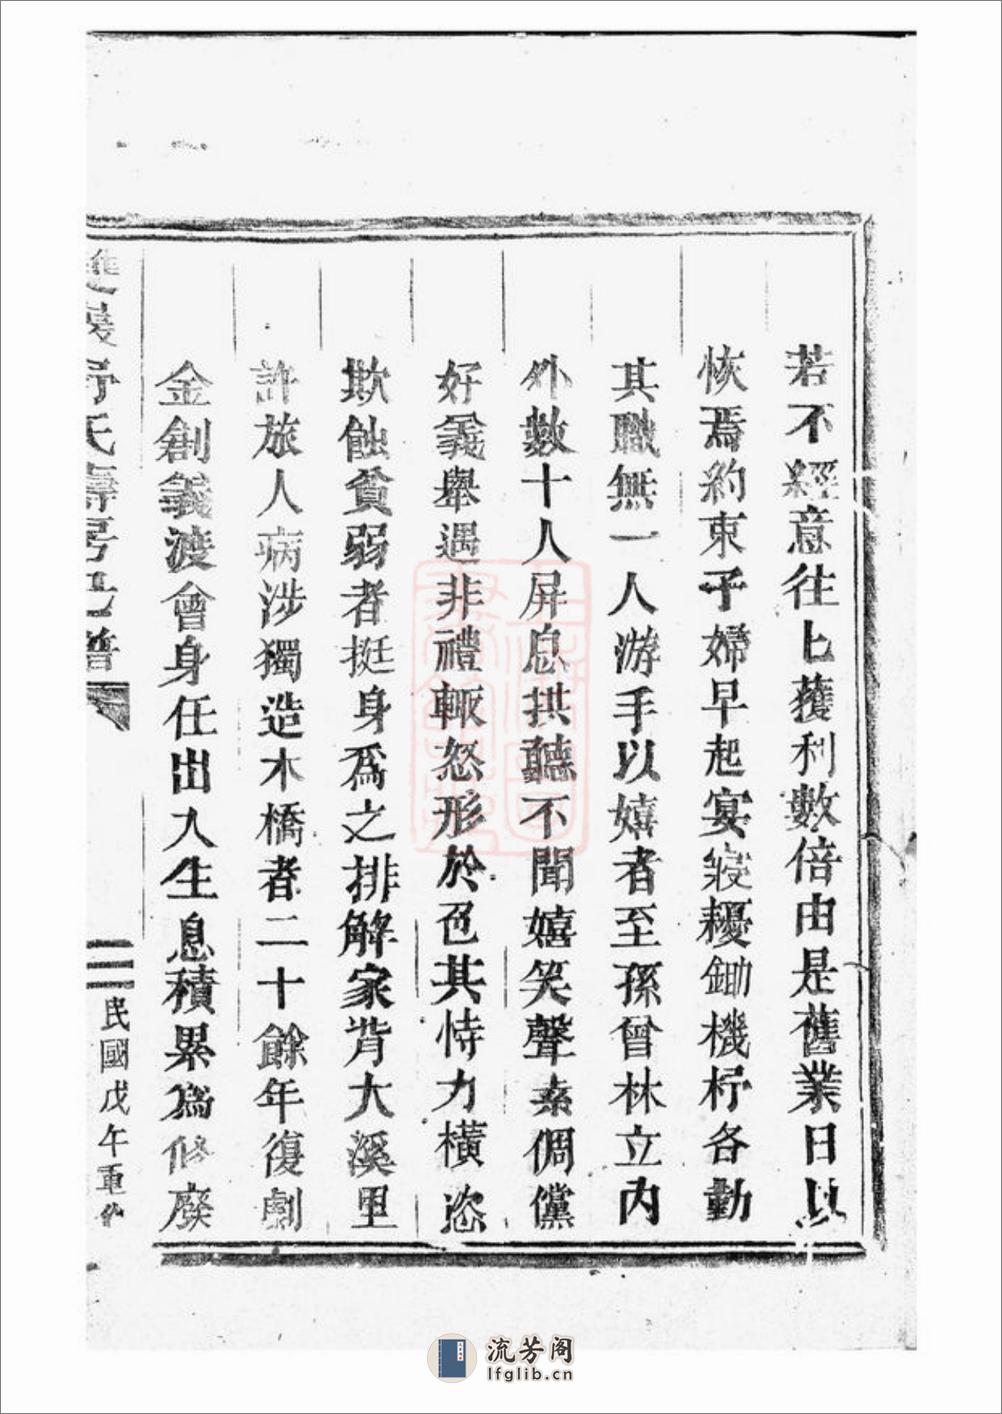 若不經意往匕獲利數倍由是舊業日以
恢焉約束子婦早起宴寢耰鋤機杼各勤
其職無一人游手以嬉者至孫曾林立內
外數十人屏息拱聽不聞嬉笑聲素倜儻
好義舉遇非禮輙怒形於色其恃力橫恣
欺蝕貧弱者挺身爲之排解家背大溪里
許旅人病涉獨造木橋者二十餘年復劇
金創義渡會身任出入生息積累爲修廢
舒氏壽房七譜
民國戊午重
流芳阁
lfglib.cn